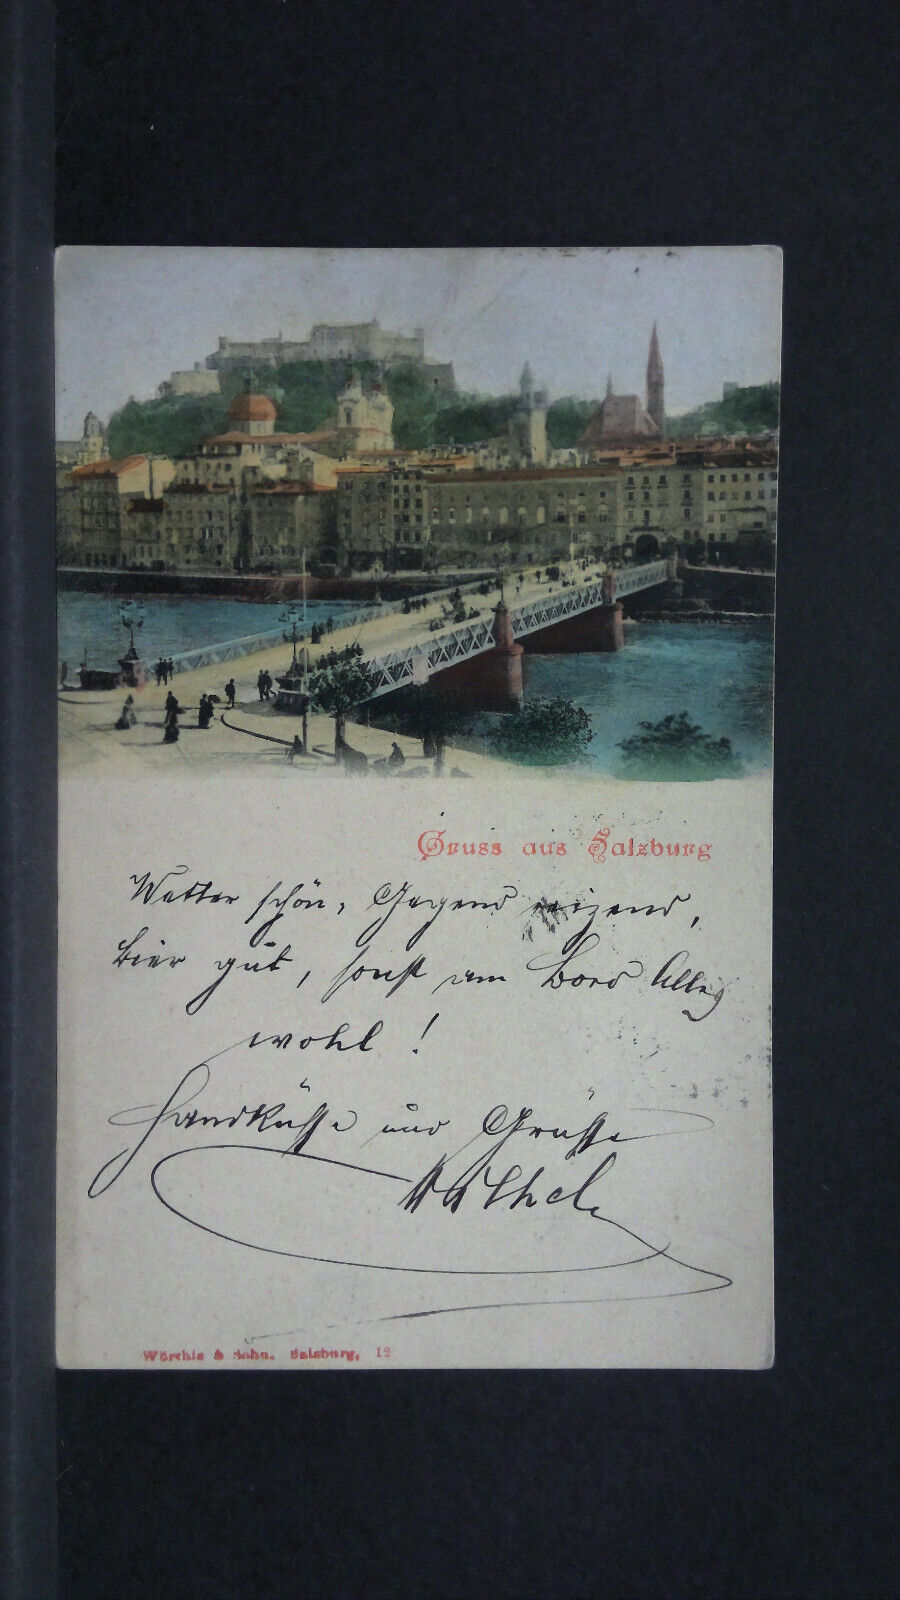 Gruss aus Salzburg
Wetter schön, Gegend reizend,
Bier gut, sonst am Bord Alles
wohl!
Handküsse und Grüsse
Wörthle & Sohn. Salzburg, 12